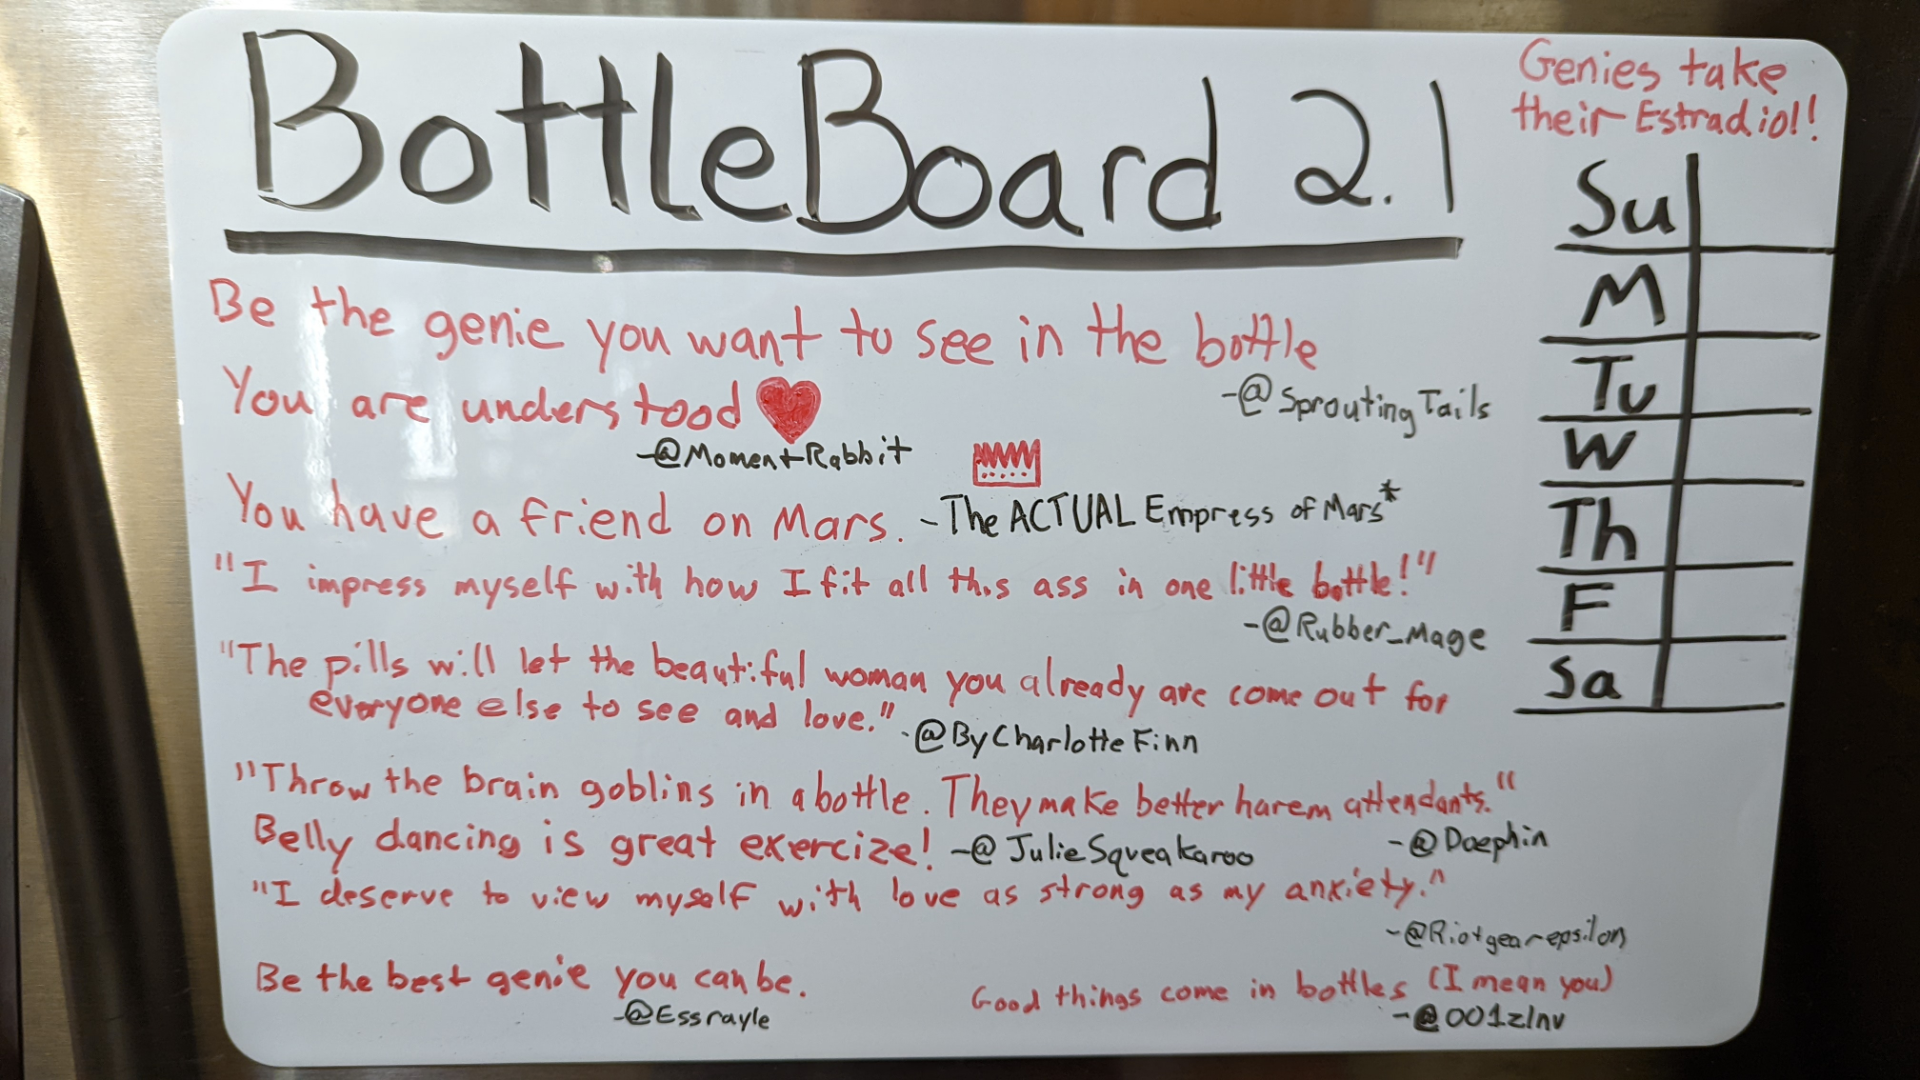 BottleBoard 2.1
Genies take
their Estradiol!
Su
M
Tu
W
Th
F
Sa
Be the genie you want to see in the bottle
-@SproutingTails
You are understood
-@MomentRabbit
You have a friend on Mars. -The ACTUAL Empress of Mars*
"I impress myself with how I fit all this ass in one little bottle!"
-@Rubber_Mage
"The pills will let the beautiful woman you already are come out for
everyone else to see and love." -@ByCharlotteFinn
"Throw the brain goblins in a bottle. They make better harem attendants."
-@Daephin
Belly dancing is great exercize! -@JulieSqueakaroo
"I deserve to view myself with love as strong as my anxiety."
-@Riotgearepsilon
Be the best genie you can be.
-@Essrayle
Good things come in bottles (I mean you)
-@001zlnv